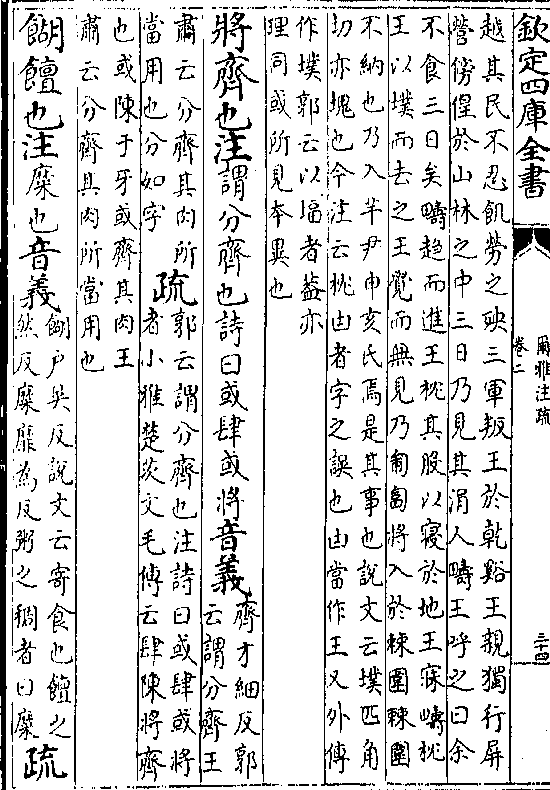 欽定四庫全書
爾雅注疏
卷二
三十四
越其民不忍飢勞之殃三軍叛王於乾谿王親獨行屏
營傍偟於山林之中三日乃見其涓人疇王呼之曰余
不食三日矣疇趋而進王枕其股以寢於地王寐疇枕
王以墣而去之王覺而無見乃匍匐將入於棘圍棘圍
不納也乃入芊尹申亥氏焉是其事也說文云墣匹角
切亦塊也今注云枕由者字之誤也由當作王又外傳
作墣郭云以堛者葢亦
理同或所見本異也
將齊也注謂分齊也詩曰或肆或將音義齊才細反郭
云謂分齊王
肅云分齊其肉所
當用也分如字疏郭云謂分齊也注詩曰或肆或將
者小雅楚茨文毛傳云肆陳將齊
也或陳于牙或齊其肉王
肅云分齊其肉所當用也
餬饘也注糜也音義餬户吳反說文云寄食也饘之
然反糜靡為反粥之稠者曰糜疏